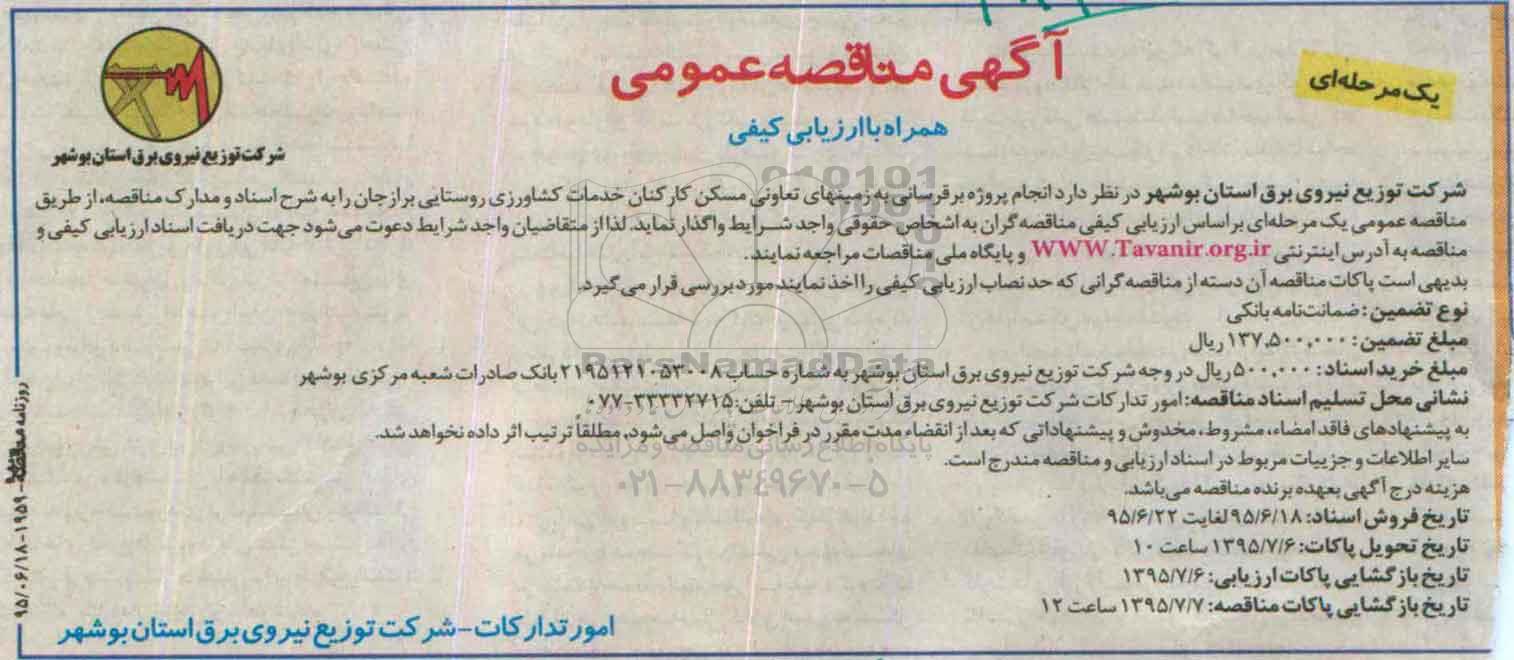 یک مرحله‌ای
آگهی مناقصه عمومی
همراه با ارزیابی کیفی
شرکت توزیع نیروی برق استان بوشهر
شرکت توزیع نیروی برق استان بوشهر در نظر دارد انجام پروژه برقرسانی به زمینهای تعاونی مسکن کارکنان خدمات کشاورزی روستایی برازجان را به شرح اسناد و مدارک مناقصه، از طریق
مناقصه عمومی یک مرحله‌ای براساس ارزیابی کیفی مناقصه‌گران به اشخاص حقوقی واجد شرایط واگذار نماید. لذا از متقاضیان واجد شرایط دعوت می‌شود جهت دریافت اسناد ارزیابی کیفی و
مناقصه به آدرس اینترنتی WWW.Tavanir.org.ir و پایگاه ملی مناقصات مراجعه نمایند.
بدیهی است پاکات مناقصه آن دسته از مناقصه‌گرانی که حد نصاب ارزیابی کیفی را اخذ نمایند مورد بررسی قرار می‌گیرد.
نوع تضمین: ضمانت‌نامه بانکی
مبلغ تضمین: ۱۳۷,۵۰۰,۰۰۰ ریال
مبلغ خرید اسناد: ۵۰۰,۰۰۰ ریال در وجه شرکت توزیع نیروی برق استان بوشهر به شماره حساب ۲۱۹۵۱۲۱۰۵۳۰۰۸ بانک صادرات شعبه مرکزی بوشهر
نشانی محل تسلیم اسناد مناقصه: امور تدارکات شرکت توزیع نیروی برق استان بوشهر - تلفن: ۳۳۳۳۲۷۱۵-۰۷۷
به پیشنهادهای فاقد امضاء، مشروط، مخدوش و پیشنهاداتی که بعد از انقضاء مدت مقرر در فراخوان واصل می‌شود، مطلقاً ترتیب اثر داده نخواهد شد.
سایر اطلاعات و جزییات مربوط در اسناد ارزیابی و مناقصه مندرج است.
هزینه درج آگهی بعهده برنده مناقصه می‌باشد.
تاریخ فروش اسناد: ۹۵/۶/۱۸ لغایت ۹۵/۶/۲۲
تاریخ تحویل پاکات: ۱۳۹۵/۷/۶ ساعت ۱۰
تاریخ بازگشایی پاکات ارزیابی: ۱۳۹۵/۷/۶
تاریخ بازگشایی پاکات مناقصه: ۱۳۹۵/۷/۷ ساعت ۱۲
امور تدارکات - شرکت توزیع نیروی برق استان بوشهر
روزنامه مناقصه - ۱۹۵۹ - ۹۵/۰۶/۱۸
ParsNamadData
پایگاه اطلاع رسانی مناقصه و مزایده
۰۲۱-۸۸۳۴۹۶۷۰-۵